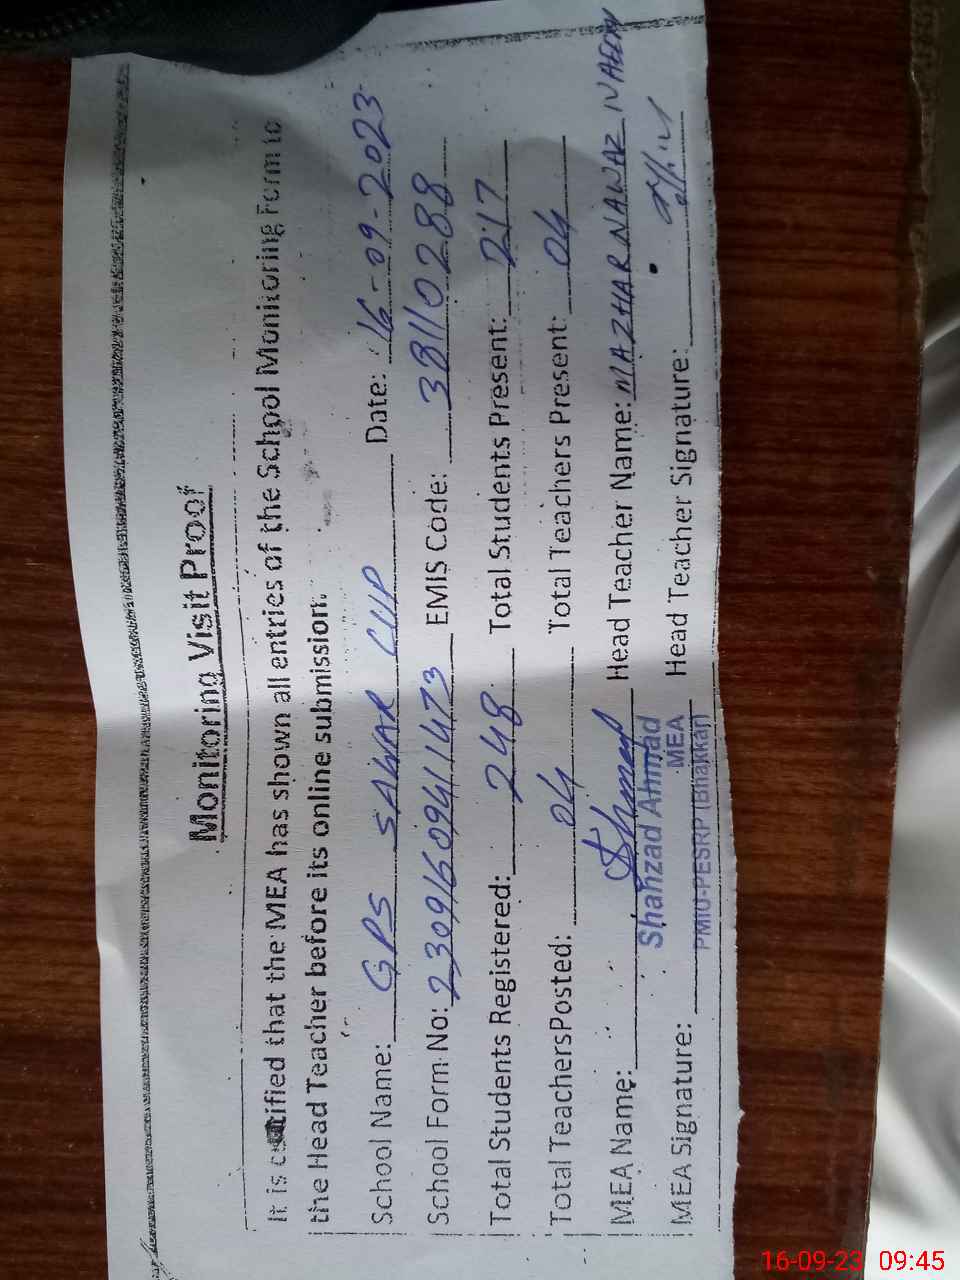 Monitoring Visit Proof
It is certified that the MEA has shown all entries of the School Monitoring Form to
the Head Teacher before its online submission.
School Name: GPS SAWAR Date: 16-09-2023
School Form No: 230916094111473 EMIS Code: 38110288
Total Students Registered: 248 Total Students Present: 217
Total Teachers Posted: 04 Total Teachers Present: 04
MEA Name: Head Teacher Name: MAZHAR NAWAZ
Shahzad Ahmad
MEA Signature: Head Teacher Signature:
MEA
PMIU-PESRP (Bhakkar)
16-09-23 09:45